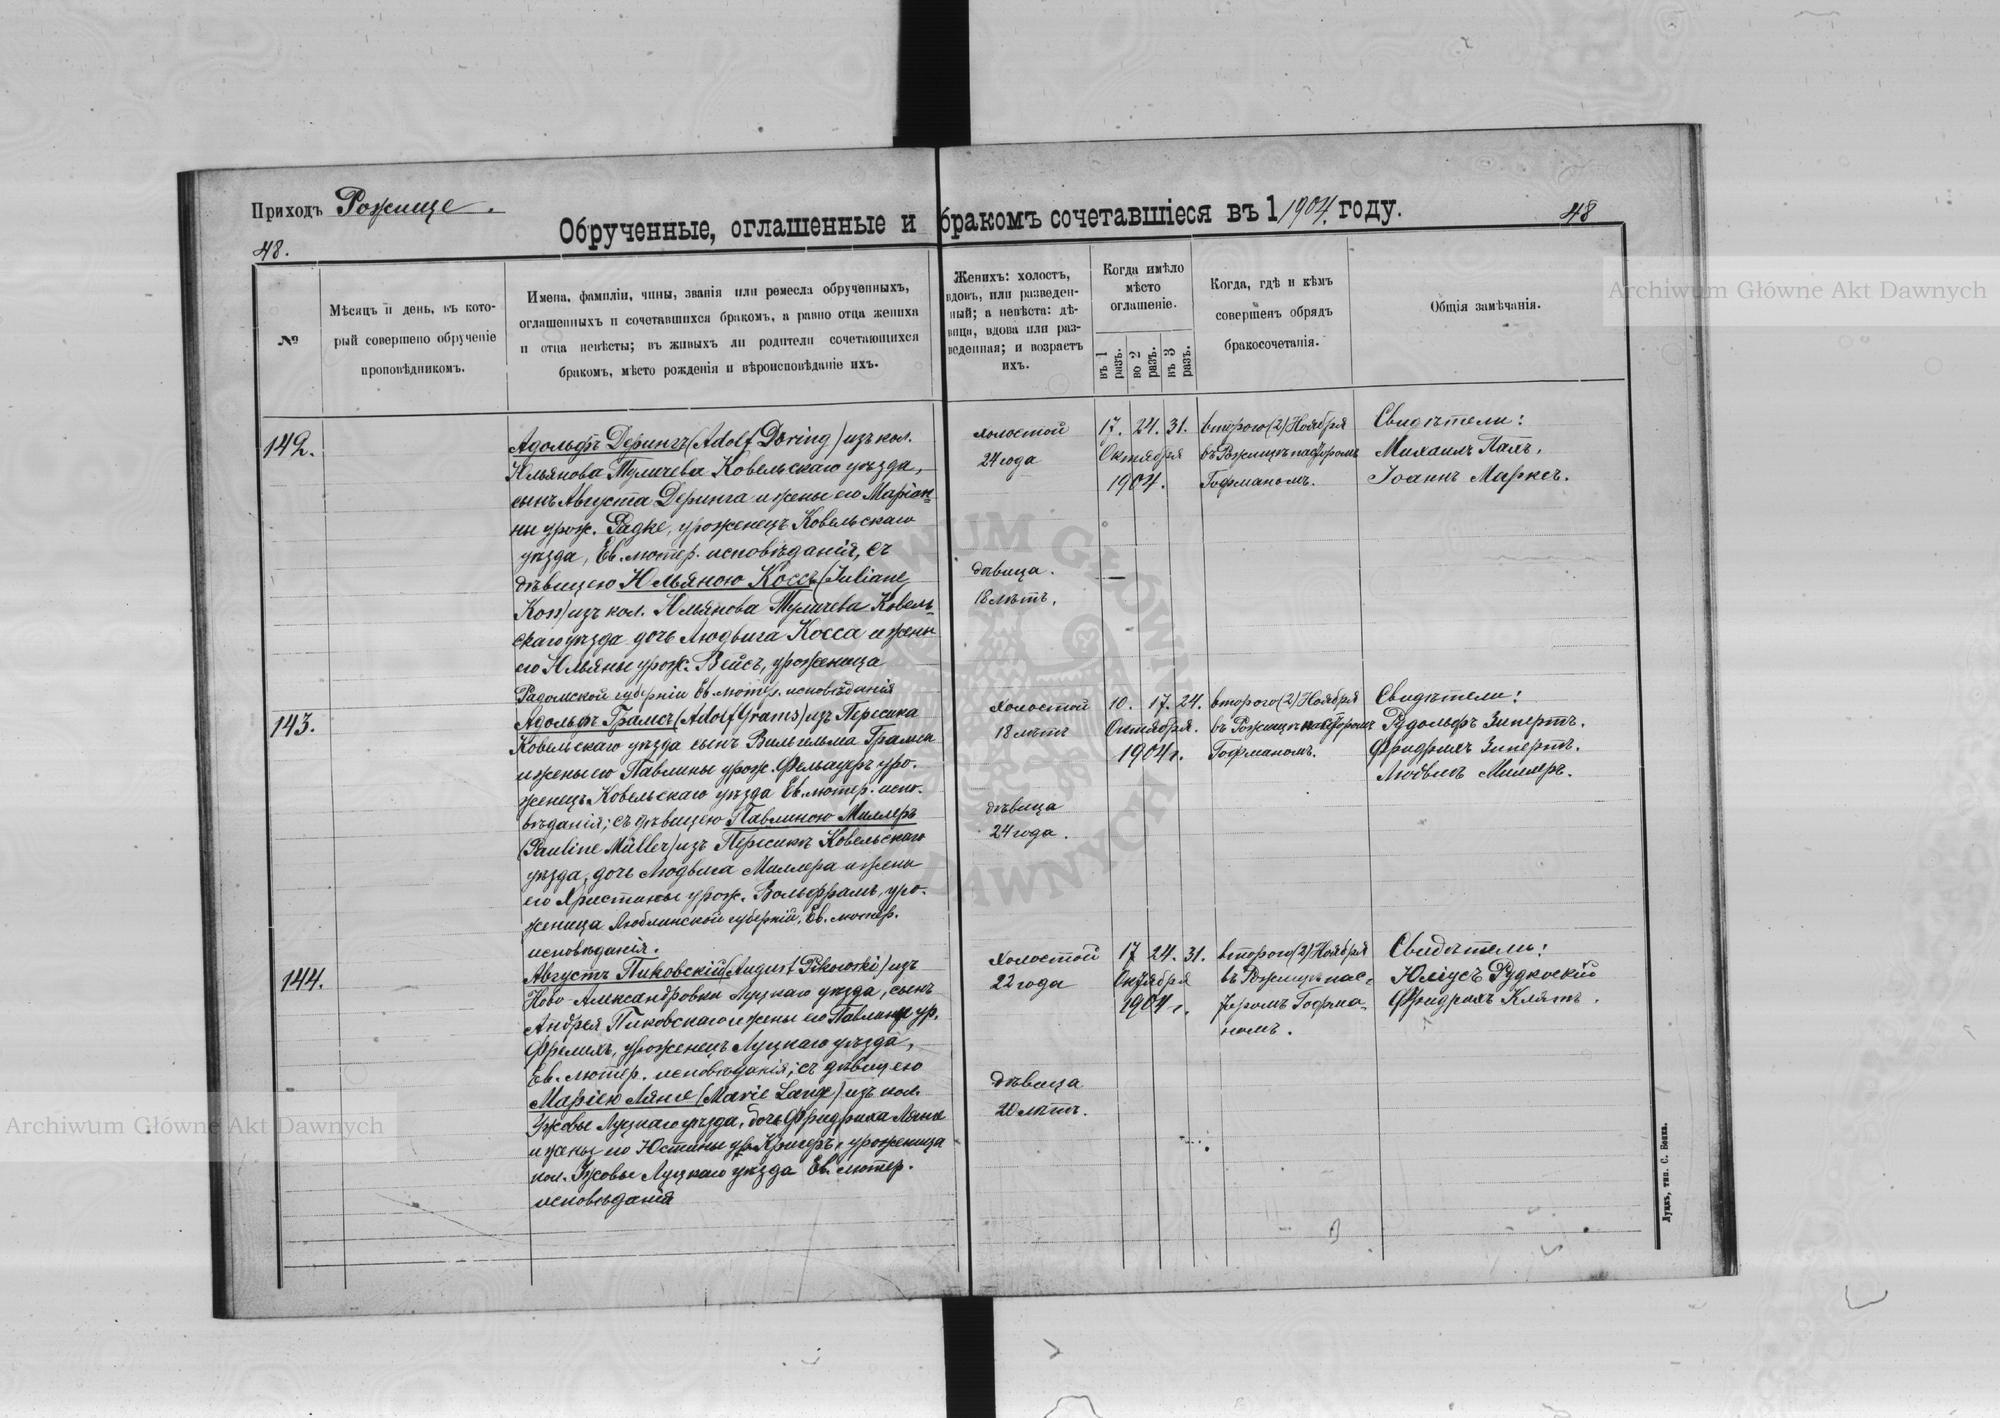 Приходъ Рожище.
Обрученные, оглашенные и бракомъ сочетавшіеся въ 1 1904 году.
48.
48
№
Мѣсяцъ и день, въ кото-
рый совершено обрученіе
проповѣдникомъ.
Имена, фамиліи, чины, званія или ремесла обрученныхъ,
оглашенныхъ и сочетавшихся бракомъ, а равно отца жениха
и отца невѣсты; въ живыхъ ли родители сочетающихся
бракомъ, мѣсто рожденія и вѣроисповѣданіе ихъ.
Женихъ: холостъ,
вдовъ, или разведен-
ный; а невѣста: дѣ-
вица, вдова или раз-
веденная; и возрастъ
ихъ.
Когда имѣло
мѣсто
оглашеніе.
въ 1 разъ.
во 2 разъ.
въ 3 разъ.
Когда, гдѣ и кѣмъ
совершенъ обрядъ
бракосочетанія.
Общія замѣчанія.
142.
Адольфъ Дерингъ (Adolf Döring) изъ кол.
Юльянова Туличева Ковельскаго уѣзда,
сынъ Августа Деринга и жены его Маріан-
ны урож. Радке, уроженецъ Ковельскаго
уѣзда, Ев. лютер. исповѣданія, съ
дѣвицею Юльяною Коссъ (Juliane
Koss) изъ кол. Юльянова Туличева Ковель-
скаго уѣзда дочь Людвига Косса и жены
его Юльяны урож. Вейсъ, уроженица
Радомской губерніи Ев. лютер. исповѣданія
холостой
24 года
дѣвица.
18 лѣтъ.
17. 24. 31.
Октября
1904.
второго (2) Ноября
въ Рожищѣ пасторомъ
Гофманомъ.
Свидѣтели:
Михаилъ Папъ.
Іоаннъ Марксъ.
143.
Адольфъ Грамсъ (Adolf Grams) изъ Пересика
Ковельскаго уѣзда сынъ Вильгельма Грамса
и жены его Павлины урож. Фельауеръ уро-
женецъ Ковельскаго уѣзда Ев. лютер. испо-
вѣданія; съ дѣвицею Павлиною Миллеръ
(Pauline Müller) изъ Пересикъ Ковельскаго
уѣзда, дочь Людвига Миллера и жены
его Христины урож. Вольфрамъ, уро-
женица Люблинской губерній, Ев. лютер.
исповѣданія.
Холостой
18 лѣтъ
дѣвица
24 года.
10. 17. 24.
Октября.
1904 г.
второго (2) Ноября
въ Рожищѣ пасторомъ
Гофманомъ.
Свидѣтели:
Рудольфъ Зипертъ.
Фридрихъ Зипертъ.
Людвигъ Миллеръ.
144.
Августъ Пиковскій (August Pikowski) изъ
Ново-Александровки Луцкаго уѣзда, сынъ
Андрея Пиковскаго и жены его Павлины ур.
Фрелихъ, уроженецъ Луцкаго уѣзда,
Ев. лютер. исповѣданія; съ дѣвицею
Маріею Лянге (Marie Lange) изъ кол.
Ужовы Луцкаго уѣзда, дочь Фридриха Лянге
и жены его Юстины ур. Кригеръ, уроженица
кол. Ужовы Луцкаго уѣзда Ев. лютер.
исповѣданія
Холостой
22 года
Дѣвица
20 лѣтъ.
17 24. 31.
Октября
1904 г.
второго (2) Ноября
въ Рожищѣ пас-
торомъ Гофма-
номъ.
Свидѣтели:
Юліусъ Рудковскій
Фридрихъ Клятъ.
Луцкъ, тип. С. Бонка.
Archiwum Główne Akt Dawnych
Archiwum Główne Akt Dawnych